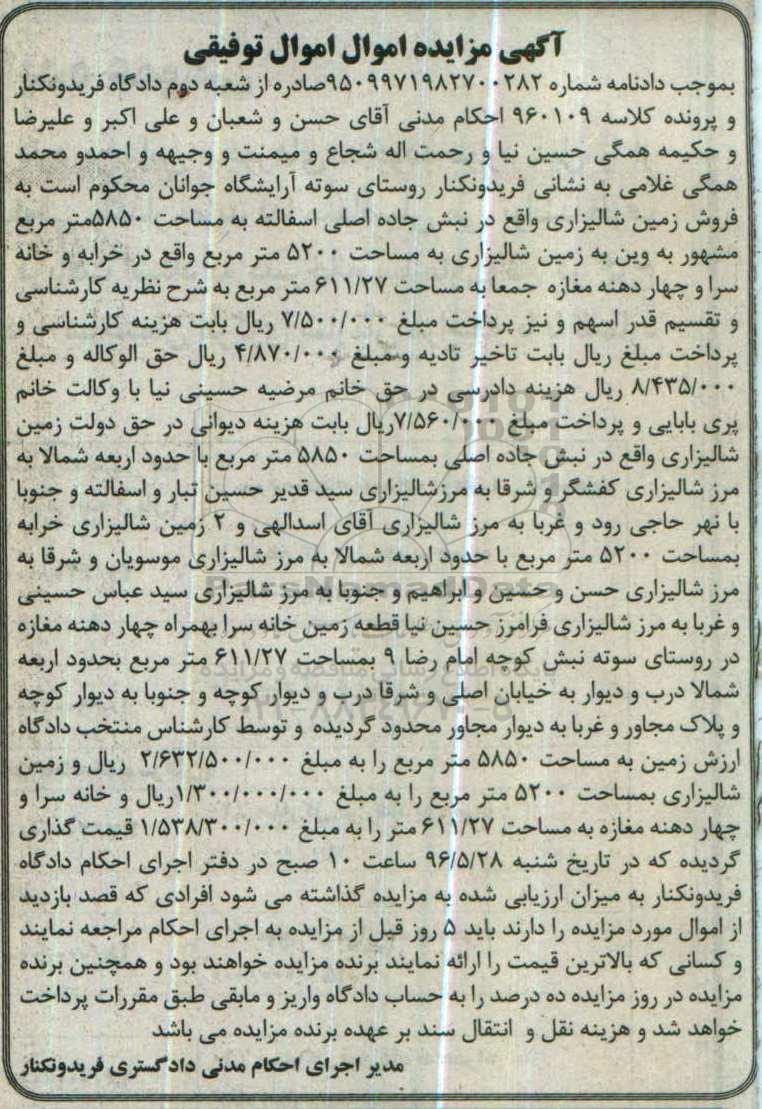 آگهی مزایده اموال اموال توفیقی
بموجب دادنامه شماره ۹۵۰۹۹۷۱۹۸۲۷۰۰۲۸۲صادره از شعبه دوم دادگاه فریدونکنار
و پرونده کلاسه ۹۶۰۱۰۹ احکام مدنی آقای حسن و شعبان و علی اکبر و علیرضا
و حکیمه همگی حسین نیا و رحمت اله شجاع و میمنت و وجیهه و احمدو محمد
همگی غلامی به نشانی فریدونکنار روستای سوته آرایشگاه جوانان محکوم است به
فروش زمین شالیزاری واقع در نبش جاده اصلی اسفالته به مساحت ۵۸۵۰متر مربع
مشهور به وین به زمین شالیزاری به مساحت ۵۲۰۰ متر مربع واقع در خرابه و خانه
سرا و چهار دهنه مغازه جمعا به مساحت ۶۱۱/۲۷ متر مربع به شرح نظریه کارشناسی
و تقسیم قدر اسهم و نیز پرداخت مبلغ ۷/۵۰۰/۰۰۰ ریال بابت هزینه کارشناسی و
پرداخت مبلغ ریال بابت تاخیر تادیه و مبلغ ۴/۸۷۰/۰۰۰ ریال حق الوکاله و مبلغ
۸/۴۳۵/۰۰۰ ریال هزینه دادرسی در حق خانم مرضیه حسینی نیا با وکالت خانم
پری بابایی و پرداخت مبلغ ۷/۵۶۰/۰۰۰ریال بابت هزینه دیوانی در حق دولت زمین
شالیزاری واقع در نبش جاده اصلی بمساحت ۵۸۵۰ متر مربع با حدود اربعه شمالا به
مرز شالیزاری کفشگر و شرقا به مرزشالیزاری سید قدیر حسین تبار و اسفالته و جنوبا
با نهر حاجی رود و غربا به مرز شالیزاری آقای اسدالهی و ۲ زمین شالیزاری خرابه
بمساحت ۵۲۰۰ متر مربع با حدود اربعه شمالا به مرز شالیزاری موسویان و شرقا به
مرز شالیزاری حسن و حسین و ابراهیم و جنوبا به مرز شالیزاری سید عباس حسینی
و غربا به مرز شالیزاری فرامرز حسین نیا قطعه زمین خانه سرا بهمراه چهار دهنه مغازه
در روستای سوته نبش کوچه امام رضا ۹ بمساحت ۶۱۱/۲۷ متر مربع بحدود اربعه
شمالا درب و دیوار به خیابان اصلی و شرقا درب و دیوار کوچه و جنوبا به دیوار کوچه
و پلاک مجاور و غربا به دیوار مجاور محدود گردیده و توسط کارشناس منتخب دادگاه
ارزش زمین به مساحت ۵۸۵۰ متر مربع را به مبلغ ۲/۶۳۲/۵۰۰/۰۰۰ ریال و زمین
شالیزاری بمساحت ۵۲۰۰ متر مربع را به مبلغ ۱/۳۰۰/۰۰۰/۰۰۰ریال و خانه سرا و
چهار دهنه مغازه به مساحت ۶۱۱/۲۷ متر را به مبلغ ۱/۵۳۸/۳۰۰/۰۰۰ قیمت گذاری
گردیده که در تاریخ شنبه ۹۶/۵/۲۸ ساعت ۱۰ صبح در دفتر اجرای احکام دادگاه
فریدونکنار به میزان ارزیابی شده به مزایده گذاشته می شود افرادی که قصد بازدید
از اموال مورد مزایده را دارند باید ۵ روز قبل از مزایده به اجرای احکام مراجعه نمایند
و کسانی که بالاترین قیمت را ارائه نمایند برنده مزایده خواهند بود و همچنین برنده
مزایده در روز مزایده ده درصد را به حساب دادگاه واریز و مابقی طبق مقررات پرداخت
خواهد شد و هزینه نقل و انتقال سند بر عهده برنده مزایده می باشد
مدیر اجرای احکام مدنی دادگستری فریدونکنار
ParsNamadData